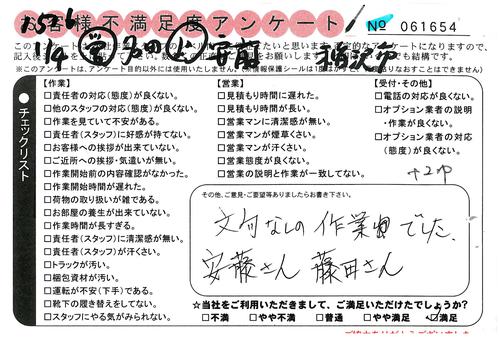 お客様不満足度アンケート
No 061654
1/4
この
記入後
※このアンケートは、アンケート目的以外には使用いたしません。
チェックリスト
【作業】
□責任者の対応(態度)が良くない。
□他のスタッフの対応(態度)が良くない。
□作業を見ていて不安がある。
□責任者(スタッフ)に好感が持てない。
□お客様への挨拶が出来ていない。
□ご近所への挨拶・気遣いが無い。
□作業開始前の内容確認がなかった。
□作業開始時間が遅れた。
□荷物の取り扱いが雑である。
□お部屋の養生が出来ていない。
□作業時間が長すぎる。
□責任者(スタッフ)に清潔感が無い。
□責任者(スタッフ)が汗くさい。
□トラックが汚い。
□梱包資材が汚い。
□運転が不安(下手)である。
□靴下の履き替えをしてない。
□スタッフにやる気がみられない。
【営業】
□見積もり時間に遅れた。
□見積もり時間が長い。
□営業マンに清潔感が無い。
□営業マンが煙草くさい。
□営業マンが汗くさい。
□営業態度が良くない。
□営業の説明と作業が一致してない。
【受付・その他】
□電話の対応が良くない。
□オプション業者の説明
・作業が良くない。
□オプション業者の対応
(態度)が良くない。
その他、ご意見・ご要望等ありましたらお書き下さい。
文句なしの作業でした。
安藤さん 藤田さん
☆当社をご利用いただきまして、ご満足いただけたでしょうか?
□不満 □やや不満 □普通 □やや満足 ☑満足